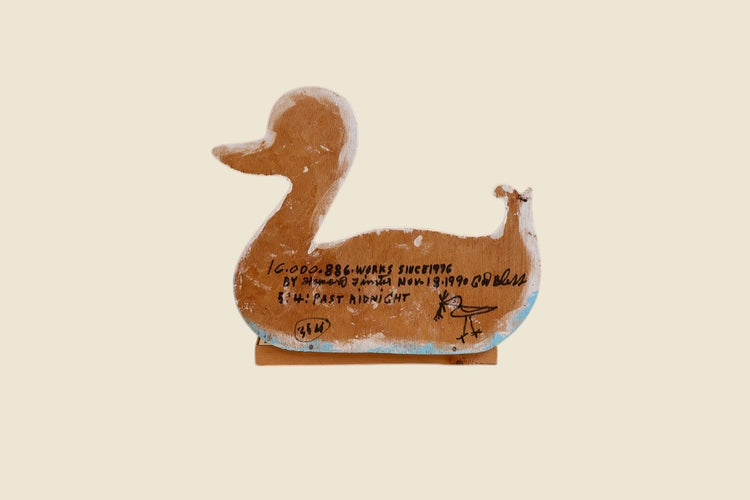 16.000.886.WORKS SINCE1976
BY Howard Finster NOV.18.1990 GOD Bless
5:4: PAST MIDNIGHT